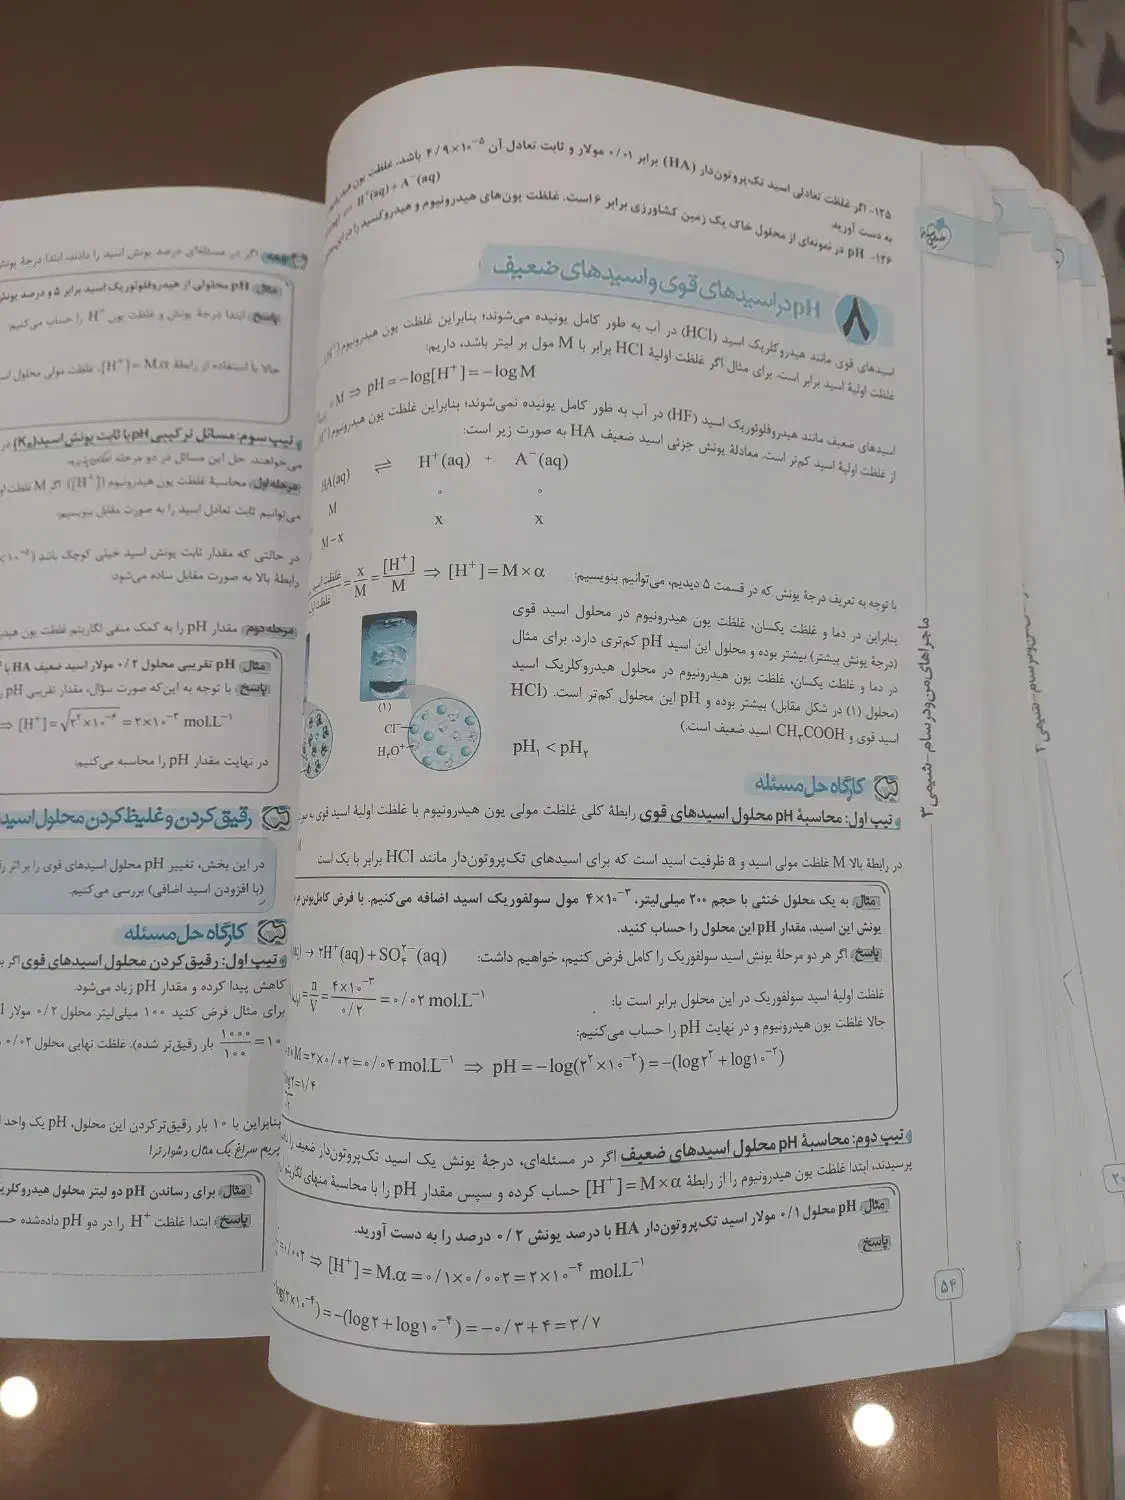 ۱۲۵- اگر غلظت تعادلی اسید تک‌پروتون‌دار (HA) برابر ۰/۰۱ مولار و ثابت تعادل آن ۴/۹×۱۰⁻⁵ باشد، غلظت یون
به دست آورید.
H⁺(aq) + A⁻(aq)
۱۲۶- pH در نمونه‌ای از محلول خاک یک زمین کشاورزی برابر ۶ است. غلظت یون‌های هیدرونیوم و هیدروکسید را در این
۸ pH در اسیدهای قوی و اسیدهای ضعیف
اسیدهای قوی مانند هیدروکلریک اسید (HCl) در آب به طور کامل یونیده می‌شوند؛ بنابراین غلظت یون هیدرونیوم
غلظت اولیهٔ اسید برابر است. برای مثال اگر غلظت اولیهٔ HCl برابر با M مول بر لیتر باشد، داریم:
M ⇒ pH = −log[H⁺] = −log M
اسیدهای ضعیف مانند هیدروفلوئوریک اسید (HF) در آب به طور کامل یونیده نمی‌شوند؛ بنابراین غلظت یون هیدرونیوم
از غلظت اولیهٔ اسید کم‌تر است. معادلهٔ یونش جزئی اسید ضعیف HA به صورت زیر است:
HA(aq) ⇌ H⁺(aq) + A⁻(aq)
M ۰ ۰
M−x x x
با توجه به تعریف درجهٔ یونش که در قسمت ۵ دیدیم، می‌توانیم بنویسیم:
= x/M = [H⁺]/M ⇒ [H⁺] = M×α
بنابراین در دما و غلظت یکسان، غلظت یون هیدرونیوم در محلول اسید قوی
(درجهٔ یونش بیشتر) بیشتر بوده و محلول این اسید pH کم‌تری دارد. برای مثال
در دما و غلظت یکسان، غلظت یون هیدرونیوم در محلول هیدروکلریک اسید
(محلول (۱) در شکل مقابل) بیشتر بوده و pH این محلول کم‌تر است. (HCl
اسید قوی و CH₃COOH اسید ضعیف است.)
pH₁ < pH₂
(۱)
Cl⁻
H₃O⁺
کارگاه حل مسئله
تیپ اول: محاسبهٔ pH محلول اسیدهای قوی رابطهٔ کلی غلظت مولی یون هیدرونیوم با غلظت اولیهٔ اسید قوی به
در رابطهٔ بالا M غلظت مولی اسید و a ظرفیت اسید است که برای اسیدهای تک‌پروتون‌دار مانند HCl برابر با یک است
مثال به یک محلول خنثی با حجم ۲۰۰ میلی‌لیتر، ۴×۱۰⁻³ مول سولفوریک اسید اضافه می‌کنیم. با فرض کامل‌بودن
یونش این اسید، مقدار pH این محلول را حساب کنید.
پاسخ اگر هر دو مرحلهٔ یونش اسید سولفوریک را کامل فرض کنیم، خواهیم داشت:
→ ۲H⁺(aq) + SO₄²⁻(aq)
غلظت اولیهٔ اسید سولفوریک در این محلول برابر است با:
= n/V = ۴×۱۰⁻³/۰/۲ = ۰/۰۲ mol.L⁻¹
حالا غلظت یون هیدرونیوم و در نهایت pH را حساب می‌کنیم:
M = ۲×۰/۰۲ = ۰/۰۴ mol.L⁻¹ ⇒ pH = −log(۲²×۱۰⁻²) = −(log۲² + log۱۰⁻²)
= ۱/۴
تیپ دوم: محاسبهٔ pH محلول اسیدهای ضعیف اگر در مسئله‌ای، درجهٔ یونش یک اسید تک‌پروتون‌دار ضعیف را
پرسیدند، ابتدا غلظت یون هیدرونیوم را از رابطهٔ [H⁺] = M×α حساب کرده و سپس مقدار pH را با محاسبهٔ منهای لگاریتم
مثال pH محلول ۰/۱ مولار اسید تک‌پروتون‌دار HA با درصد یونش ۰/۲ درصد را به دست آورید.
پاسخ
= ۰/۰۰۲ ⇒ [H⁺] = M.α = ۰/۱×۰/۰۰۲ = ۲×۱۰⁻⁴ mol.L⁻¹
(۲×۱۰⁻⁴) = −(log۲ + log۱۰⁻⁴) = −۰/۳ + ۴ = ۳/۷
۵۴
ماجراهای من و درسام - شیمی ۳
اگر در مسئله‌ای درصد یونش اسید را دادند، ابتدا درجهٔ
مثال pH محلولی از هیدروفلوئوریک اسید برابر ۵ و درصد
پاسخ ابتدا درجهٔ یونش و غلظت یون H⁺ را حساب می‌کنیم:
حالا با استفاده از رابطهٔ [H⁺] = M.α، غلظت مولی محلول
تیپ سوم: مسائل ترکیبی pH با ثابت یونش اسید (Kₐ) در
می‌خواهند. حل این مسائل در دو مرحله
مرحلهٔ اول محاسبهٔ غلظت یون هیدرونیوم ([H⁺]): اگر M غلظت
می‌توانیم ثابت تعادل اسید را به صورت مقابل بنویسیم:
در حالتی که مقدار ثابت یونش اسید خیلی کوچک باشد
رابطهٔ بالا به صورت مقابل ساده می‌شود:
مرحلهٔ دوم مقدار pH را به کمک منفی لگاریتم غلظت یون
مثال pH تقریبی محلول ۰/۲ مولار اسید ضعیف HA با
پاسخ با توجه به این‌که صورت سؤال، مقدار تقریبی pH
⇒ [H⁺] = √۲²×۱۰⁻⁶ = ۲×۱۰⁻³ mol.L⁻¹
در نهایت مقدار pH را محاسبه می‌کنیم:
رقیق کردن و غلیظ کردن محلول
در این بخش، تغییر pH محلول اسیدهای قوی را بر اثر
(با افزودن اسید اضافی) بررسی می‌کنیم.
کارگاه حل مسئله
تیپ اول: رقیق کردن محلول اسیدهای قوی اگر
کاهش پیدا کرده و مقدار pH زیاد می‌شود.
برای مثال فرض کنید ۱۰۰ میلی‌لیتر محلول ۰/۲ مولار
۱۰۰۰/۱۰۰ = ۱۰ بار رقیق‌تر شده). غلظت نهایی محلول ۰/۰۲
بنابراین با ۱۰ بار رقیق‌تر کردن این محلول، pH یک واحد
بریم سراغ یک مثال دشوارتر!
مثال برای رساندن pH دو لیتر محلول
پاسخ ابتدا غلظت H⁺ را در دو pH داده‌شده